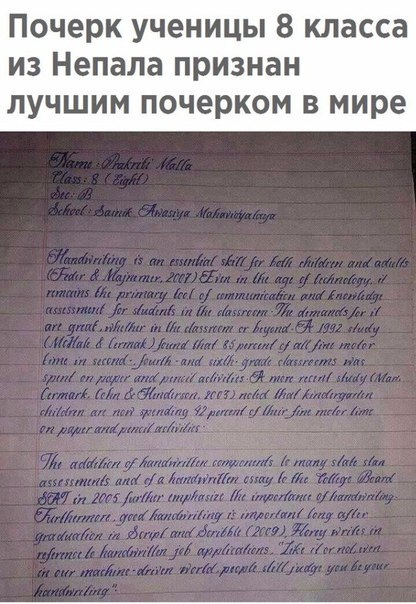 Почерк ученицы 8 класса
из Непала признан
лучшим почерком в мире
Name : Prakreti Malla
Class : 8 (Eight)
Sec : B
School : Sainik Awasiya Mahavidyalaya
Handwriting is an essential skill for both children and adults
(Feder & Majnemer, 2007) Even in the age of technology, it
remains the primary tool of communication and knowledge
assessment for students in the classroom. The demands for it
are great, whether in the classroom or beyond. A 1992 study
(McHale & Cermak) found that 85 percent of all fine motor
time in second-, fourth- and sixth- grade classrooms was
spent on paper and pencil activities. A more recent study (Marr,
Cermark, Cohn & Henderson, 2003) noted that kindergarten
children are now spending 42 percent of their fine motor time
on paper and pencil activities.
The addition of handwritten components to many state stan
assessments and of a handwritten essay to the College Board
SAT in 2005 further emphasize the importance of handwriting.
Furthermore, good handwriting is important long after
graduation in Script and Scribble (2009), Florey writes in
reference to handwritten job applications, "Like it or not, even
in our machine-driven world, people still judge you by your
handwriting".